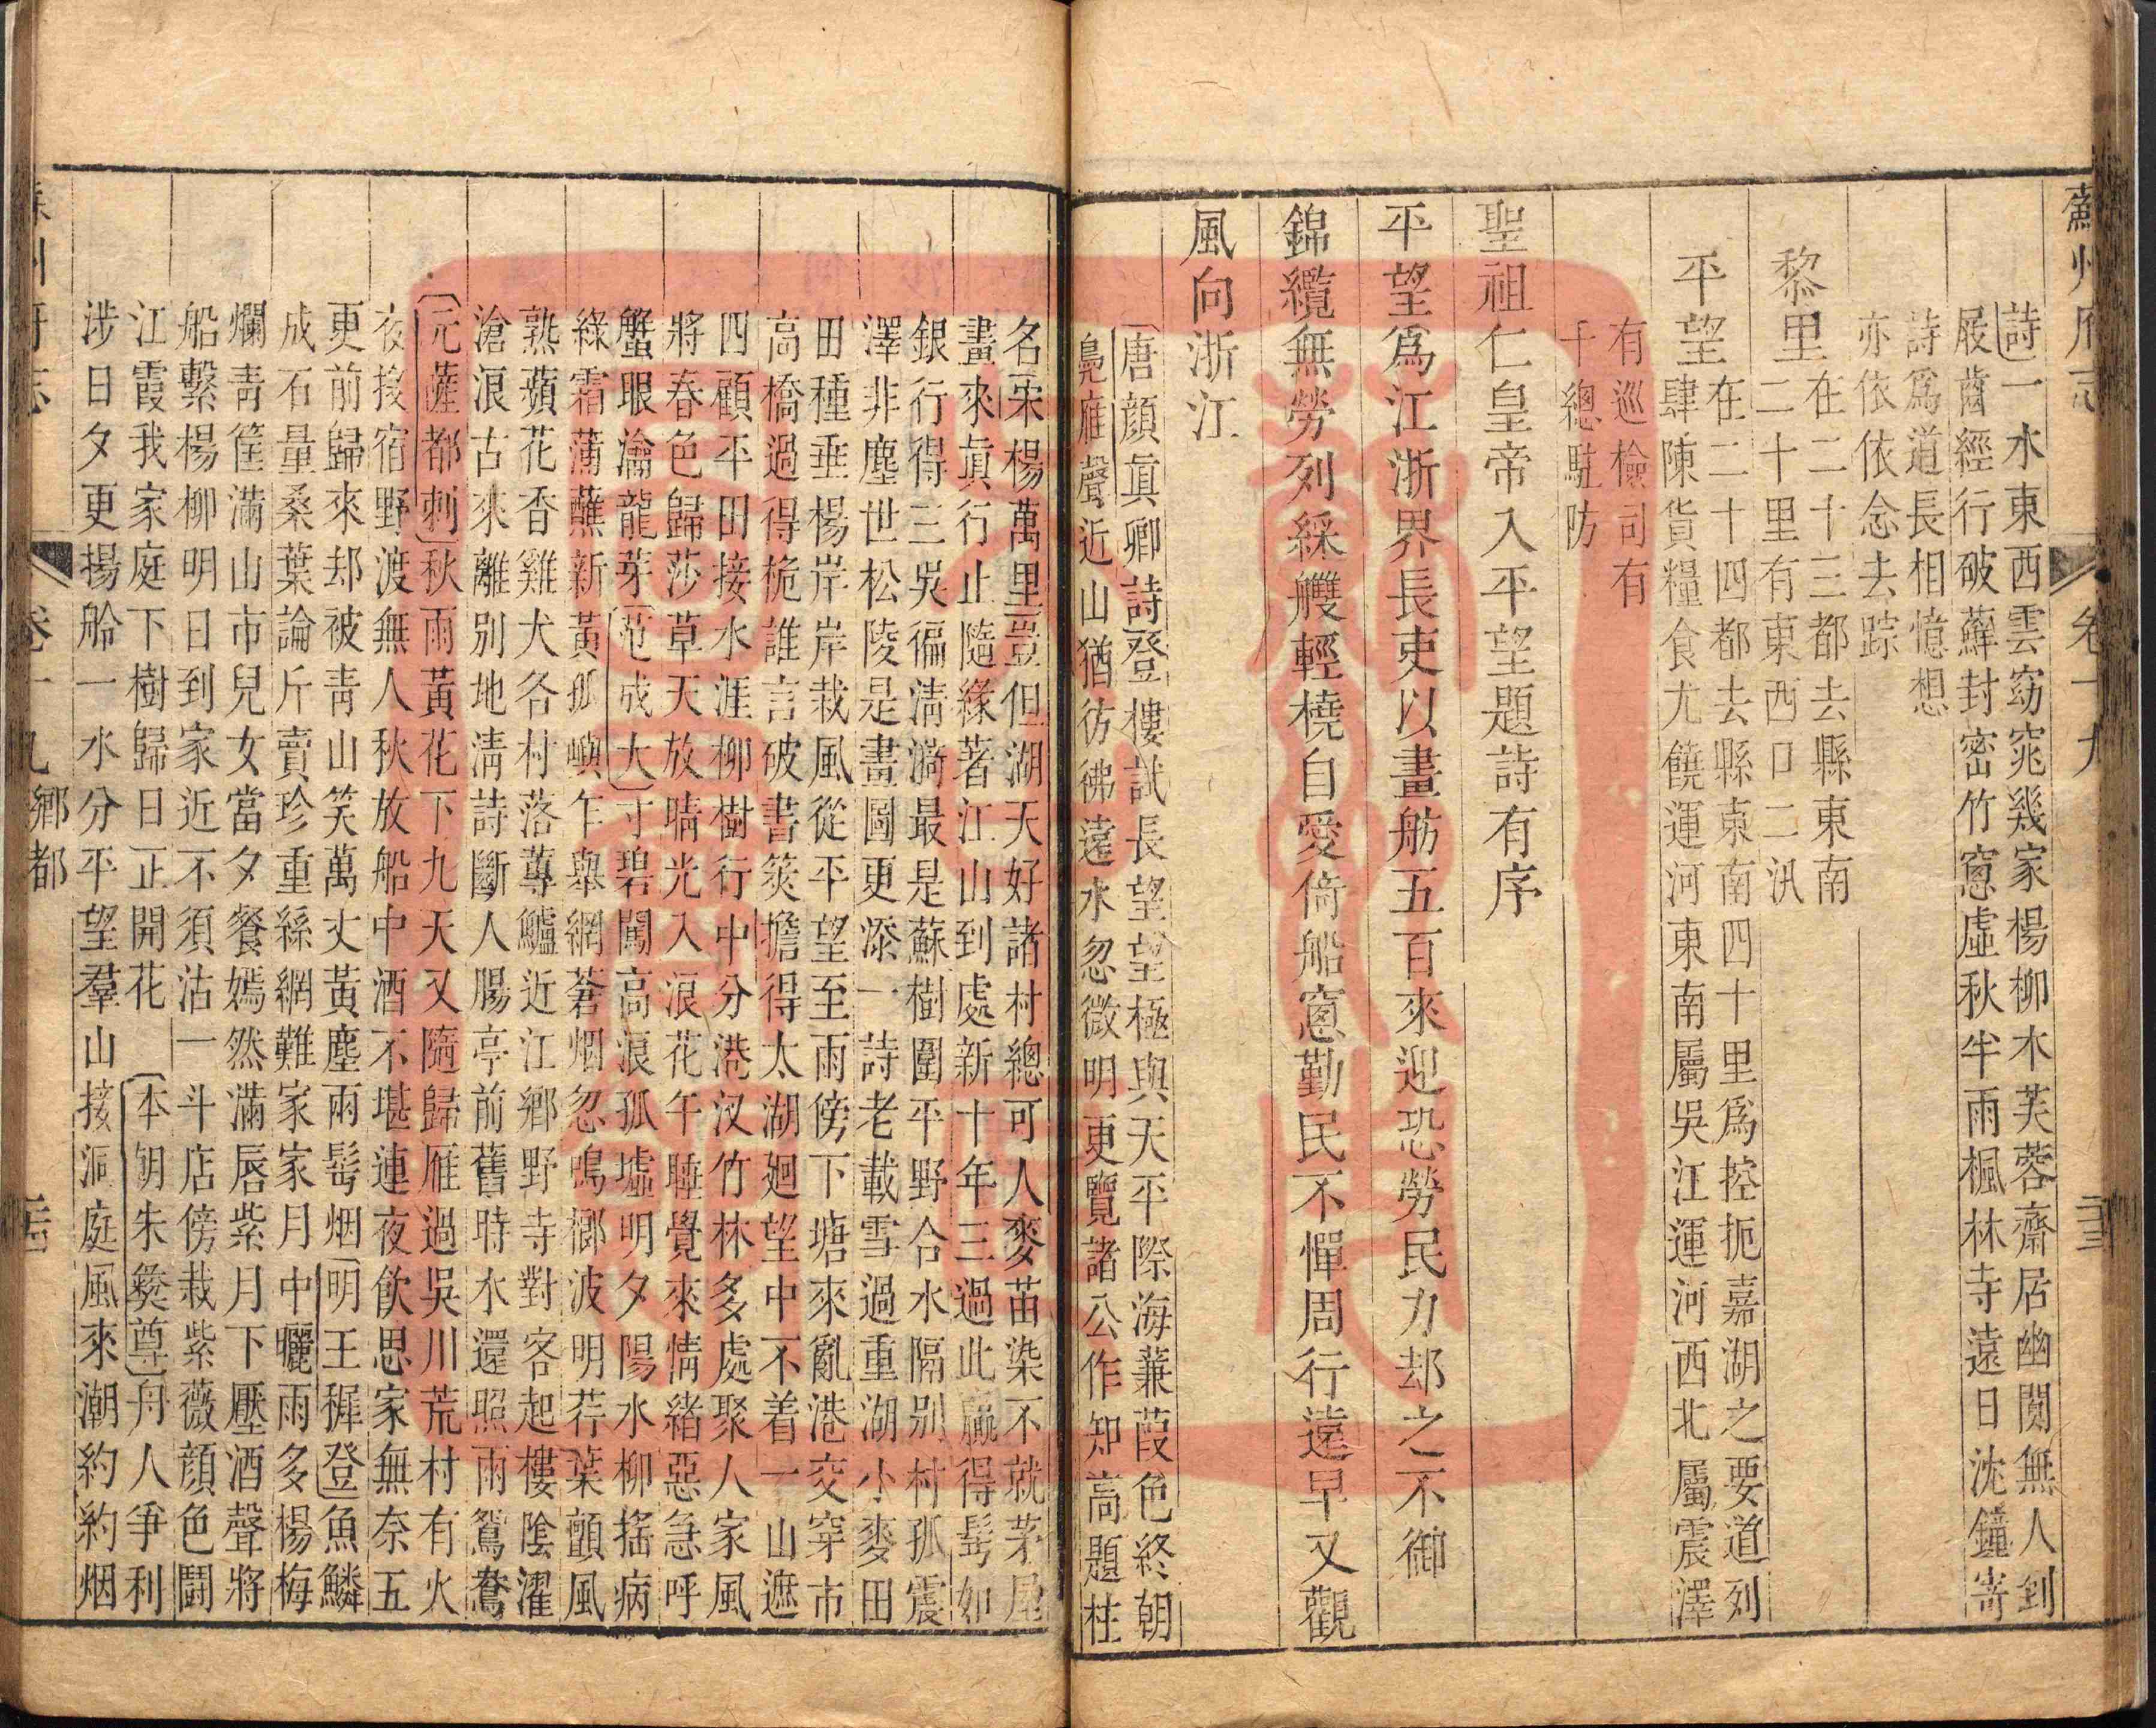 蘇州府志 卷十九
詩一水東西雲窈窕幾家楊柳木芙蓉齋居幽閴無人到
屐齒經行破蘚封密竹窻虛秋半雨楓林寺遠日沈鐘寄
詩爲道長相憶想
亦依依依念去踪
黎里在二十三都去縣東南
二十里有東西口二汛
平望在二十四都去縣東南四十里爲控扼嘉湖之要道列
肆陳貨糧食尤饒運河東南屬吳江運河西北屬震澤
有巡檢司有
千總駐防
聖祖仁皇帝入平望題詩有序
平望爲江浙界長吏以畫舫五百來迎恐勞民力却之不御
錦纜無勞列綵艭輕橈自愛倚船窻勤民不憚周行遠早又觀
風向浙江
唐顔眞卿詩登樓試長望望極與天平際海蒹葭色終朝
鳧雁聲近山猶彷彿遠水忽微明更覽諸公作知高題柱
名宋楊萬里豈但湖天好諸村總可人麥苗染不就茅屋
畫來眞行止隨緣著江山到處新十年三過此贏得髩如
銀行得三吳徧淸漪最是蘇樹圍平野合水隔別村孤震
澤非塵世松陵是畫圖更添一詩老載雪過重湖小麥田
田種垂楊岸岸栽風從平望至雨傍下塘來亂港交穿市
高橋過得桅誰言破書筴擔得太湖廻望中不着一山遮
四顧平田接水涯柳樹行中分港汊竹林多處聚人家風
將春色歸莎草天放晴光入浪花午睡覺來情緒惡急呼
蟹眼瀹龍芽范成大寸碧闖高浪孤墟明夕陽水柳搖病
綠霜蒲蘸新黃孤嶼乍舉網蒼烟忽鳴榔波明荇葉顫風
熟蘋花香雞犬各村落蓴鱸近江鄉野寺對客起樓陰濯
滄浪古來離別地淸詩斷人腸亭前舊時水還照雨鴛鴦
元薩都剌秋雨黃花下九天又隨歸雁過吳川荒村有火
夜投宿野渡無人秋放船中酒不堪連夜飮思家無奈五
更前歸來却被靑山笑萬丈黃塵兩髩烟明王穉登魚鱗
成石量桑葉論斤賣珍重絲網難家家月中曬雨多楊梅
爛靑筐滿山市兒女當夕餐嫣然滿唇紫月下壓酒聲將
船繫楊柳明日到家近不須沽一斗店傍栽紫薇顔色鬪
江霞我家庭下樹歸日正開花 本朝朱彝尊舟人爭利
涉日夕更揚舲一水分平望羣山接洞庭風來潮約約烟
蘇州府志 卷十九 鄉都